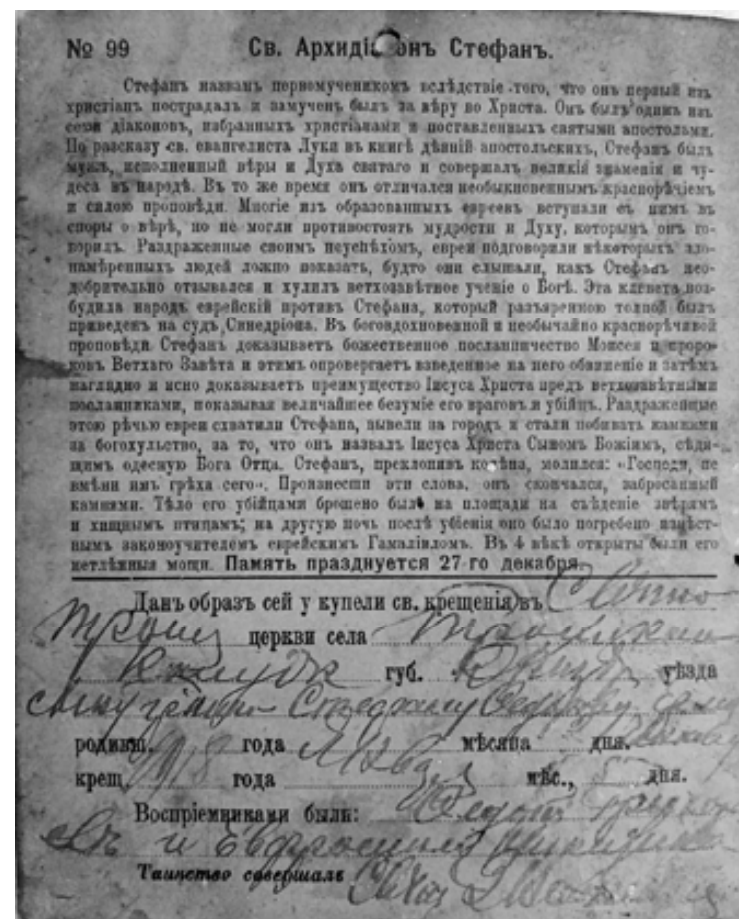 № 99 Св. Архидіаконъ Стефанъ.
Стефанъ названъ первомученикомъ вслѣдствіе того, что онъ первый изъ
христіанъ пострадалъ и замученъ былъ за вѣру во Христа. Онъ былъ однимъ изъ
семи діаконовъ, избранныхъ христіанами и поставленныхъ святыми апостолами.
По разсказу св. евангелиста Луки въ книгѣ дѣяній апостольскихъ, Стефанъ былъ
мужъ, исполненный вѣры и Духа святаго и совершалъ великія знаменія и чу-
деса въ народѣ. Въ то же время онъ отличался необыкновеннымъ краснорѣчіемъ
и силою проповѣди. Многіе изъ образованныхъ евреевъ вступали съ нимъ въ
споры о вѣрѣ, но не могли противостоять мудрости и Духу, которымъ онъ го-
ворилъ. Раздраженные своимъ неуспѣхомъ, евреи подговорили нѣкоторыхъ зло-
намѣренныхъ людей ложно показать, будто они слышали, какъ Стефанъ нео-
добрительно отзывался и хулилъ ветхозавѣтное ученіе о Богѣ. Эта клевета воз-
будила народъ еврейскій противъ Стефана, который разъяренною толпой былъ
приведенъ на судъ Синедріона. Въ боговдохновенной и необычайно краснорѣчивой
проповѣди Стефанъ доказываетъ божественное посланничество Моисея и проро-
ковъ Ветхаго Завѣта и этимъ опровергаетъ взведенное на него обвиненіе и затѣмъ
наглядно и ясно доказываетъ преимущество Іисуса Христа предъ ветхозавѣтными
посланниками, показывая величайшее безуміе его враговъ и убійцъ. Раздраженные
этою рѣчью евреи схватили Стефана, вывели за городъ и стали побивать камнями
за богохульство, за то, что онъ назвалъ Іисуса Христа Сыномъ Божіимъ, сѣдя-
щимъ одесную Бога Отца. Стефанъ, преклонивъ колѣна, молился: «Господи, не
вмѣни имъ грѣха сего». Произнесши эти слова, онъ скончался, забросанный
камнями. Тѣло его убійцами брошено было на площади на съѣденіе звѣрямъ
и хищнымъ птицамъ; на другую ночь послѣ убіенія оно было погребено извѣст-
нымъ законоучителемъ еврейскимъ Гамаліиломъ. Въ 4 вѣкѣ открыты были его
нетлѣнныя мощи. Память празднуется 27-го декабря.
Данъ образъ сей у купели св. крещенія въ Свято
Троиц церкви села
губ. уѣзда
Стефану
родивш. года мѣсяца дня.
крещ. 1918 года мѣс., дня.
Воспріемниками были: Ѳедотъ
и Евфросинія
Таинство совершалъ